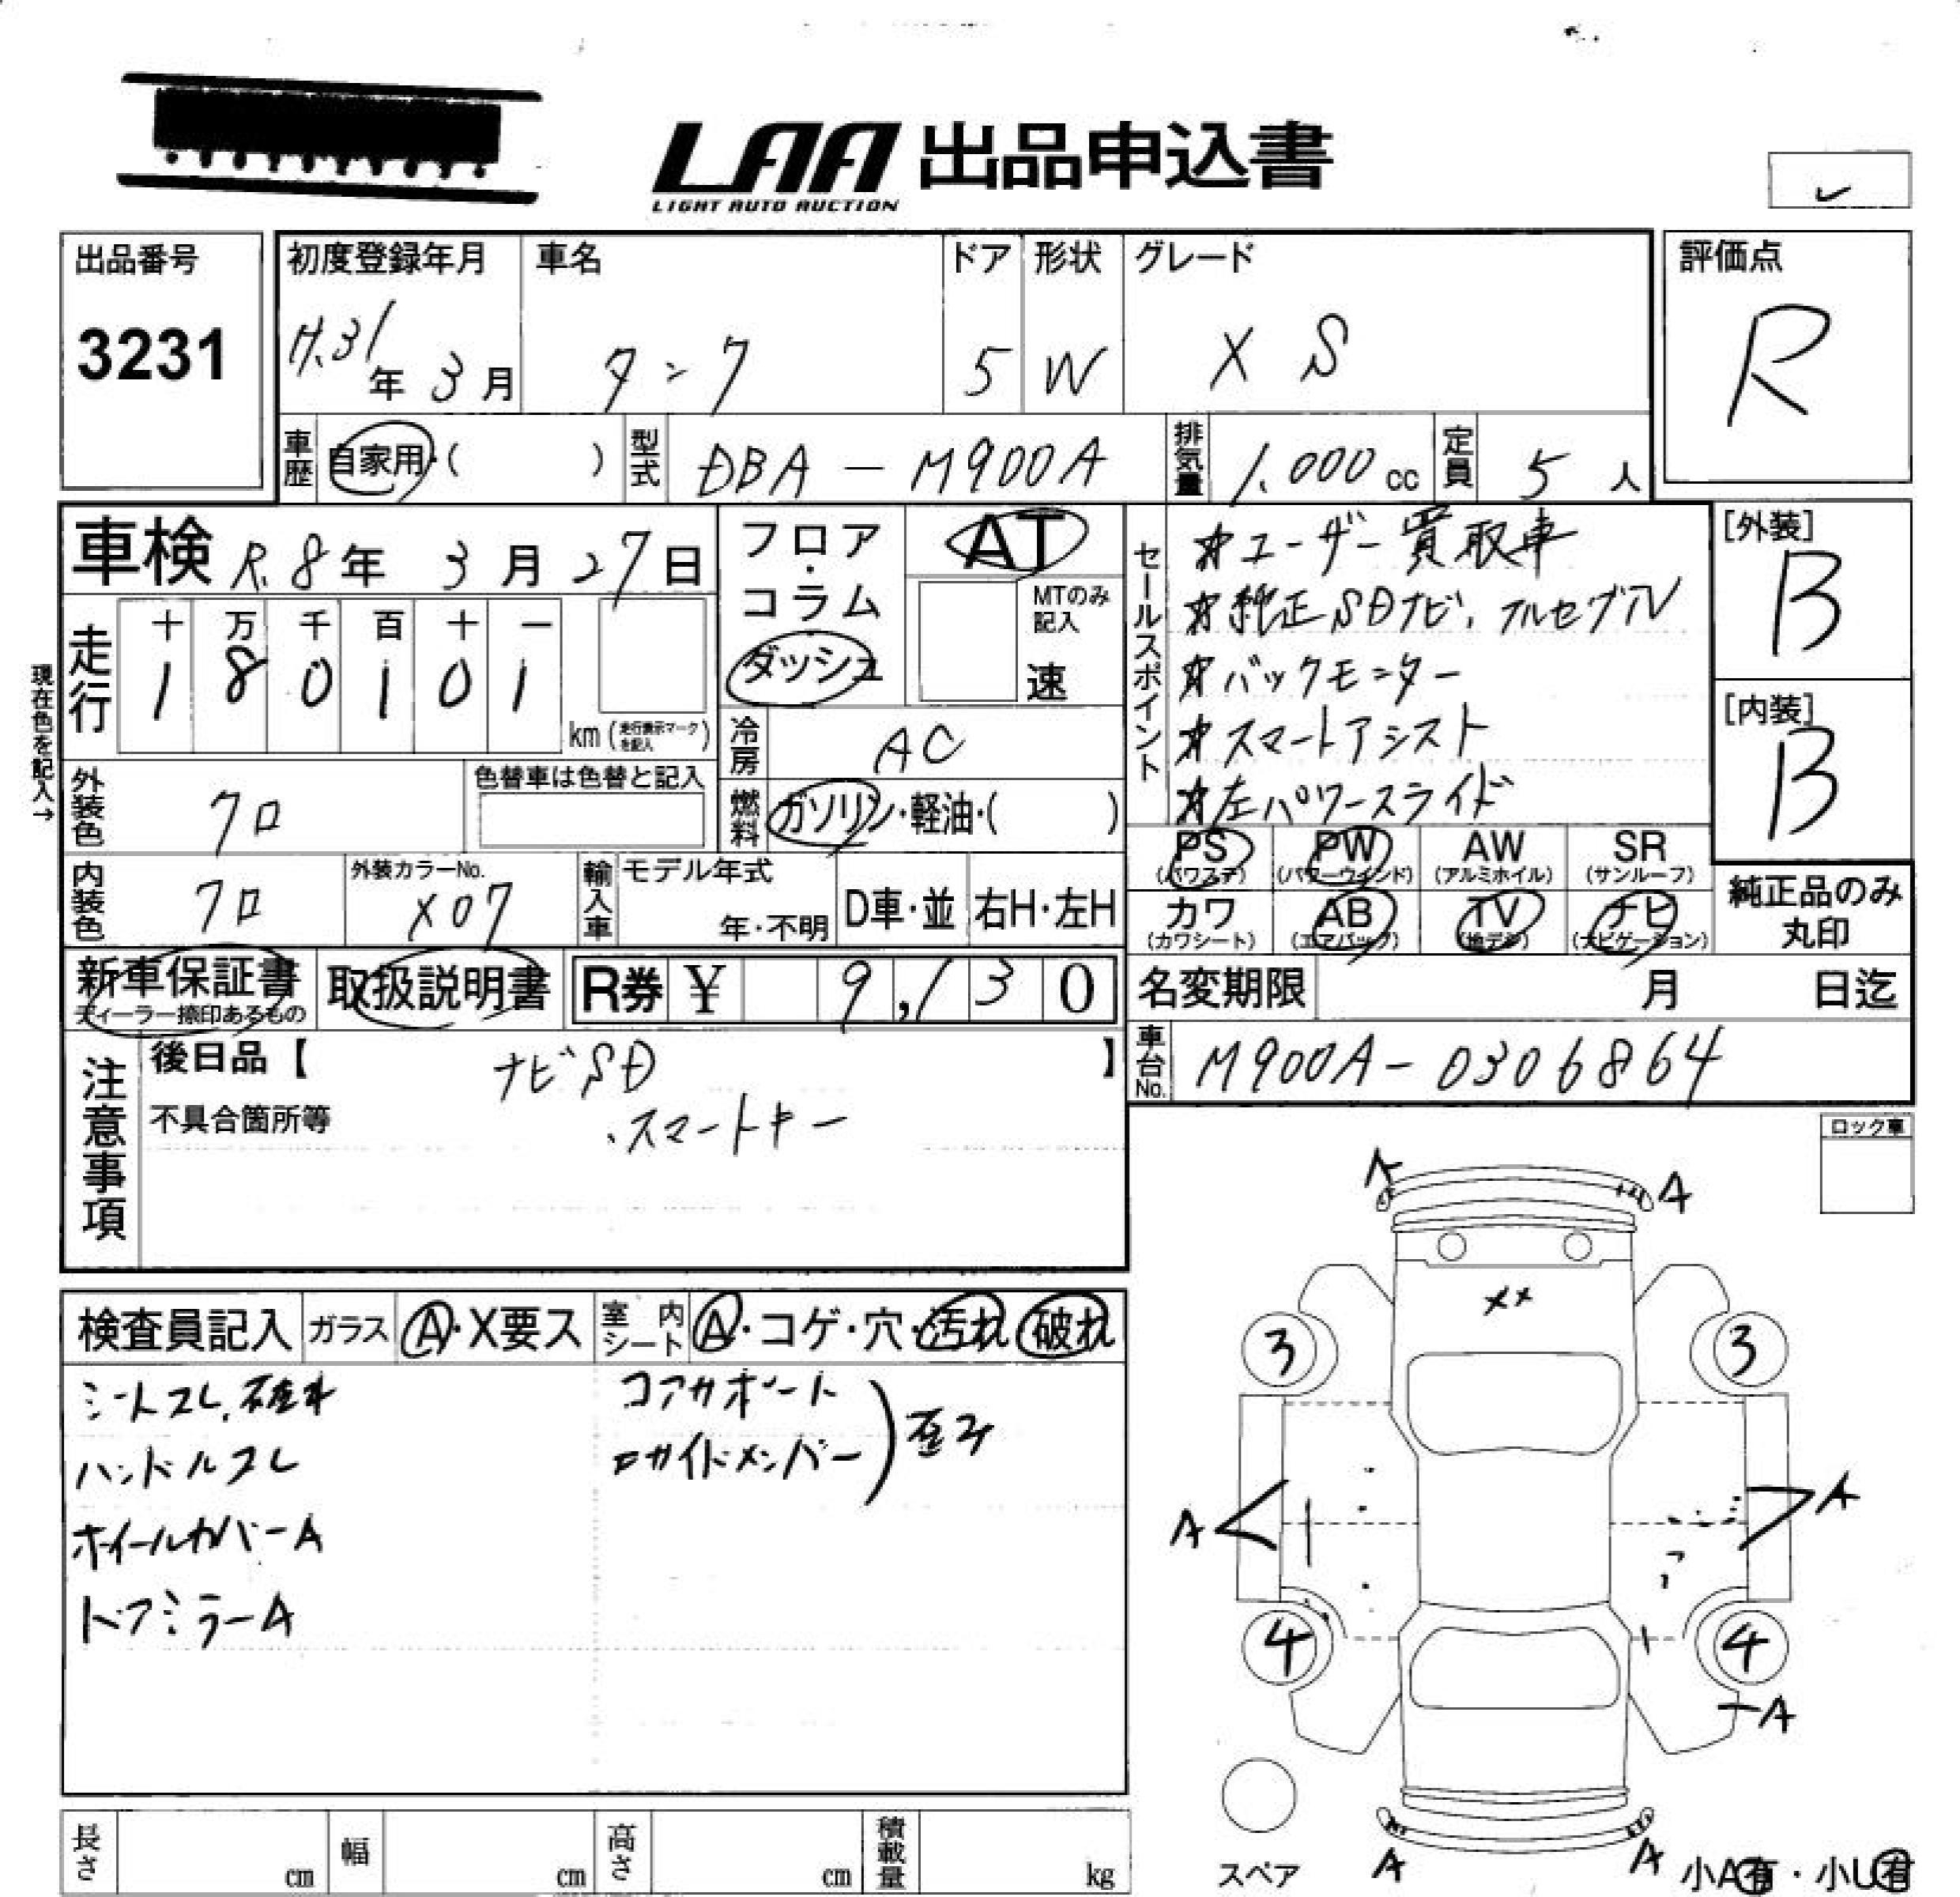 LAA 出品申込書
LIGHT AUTO AUCTION
出品番号
3231
初度登録年月
H.31年 3月
車名
タンク
ドア
5
形状
W
グレード
X S
評価点
R
車歴
自家用・( )
型式
DBA-M900A
排気量
1.000 cc
定員
5 人
車検 R.8年 3月27日
フロア・コラム
ダッシュ
AT
MTのみ記入
速
セールスポイント
☆ユーザー買取車
☆純正SDナビ、フルセグTV
☆バックモニター
☆スマートアシスト
☆左パワースライド
[外装]
B
[内装]
B
現在色を記入→
走行
十 万 千 百 十 一
1 8 0 1 0 1
km (走行表示マークを記入)
冷房
AC
外装色
クロ
色替車は色替と記入
燃料
ガソリン・軽油・( )
PS AW SR PW
(パワステ) (パワーウインド) (アルミホイル) (サンルーフ)
カワ AB TV ナビ
(カワシート) (エアバッグ) (地デジ) (ナビゲーション)
純正品のみ
丸印
内装色
クロ
外装カラーNo.
X07
輸入車
モデル年式
年・不明
D車・並
右H・左H
新車保証書
ディーラー捺印あるもの
取扱説明書
R券 ¥ 9,130
名変期限 月 日迄
車台No.
M900A-0306864
注意事項
後日品【 ナビSD 】
不具合箇所等
・スマートキー
ロック車
検査員記入
ガラス
A・X要ス
室内シート
A・コゲ・穴・汚れ 破れ
シートスレ、破れ
ハンドルスレ
ホイールカバーA
ドアミラーA
コアサポート
サイドメンバー
歪み
A
A
XX
3
3
A
A
4
4
A
スペア
A
A
小A有・小U有
長さ cm
幅 cm
高さ cm
積載量 kg